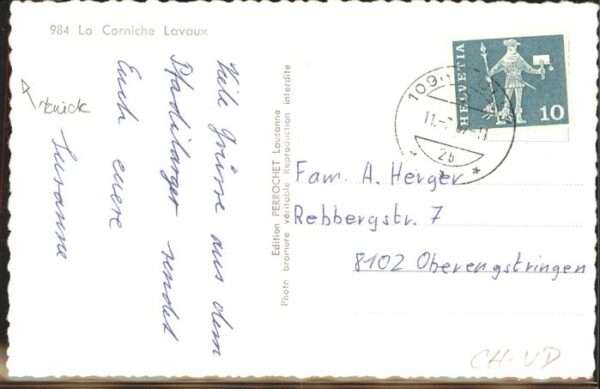 984 La Corniche Lavaux
Viele Grüsse aus dem
Pfadilager sendet
Euch euere
Susanne
Edition PERROCHET Lausanne
Photo bromure véritable Reproduction interdite
HELVETIA
10
1090
11.-7
26
Fam. A. Herger
Rebbergstr. 7
8102 Oberengstringen
CH-VD